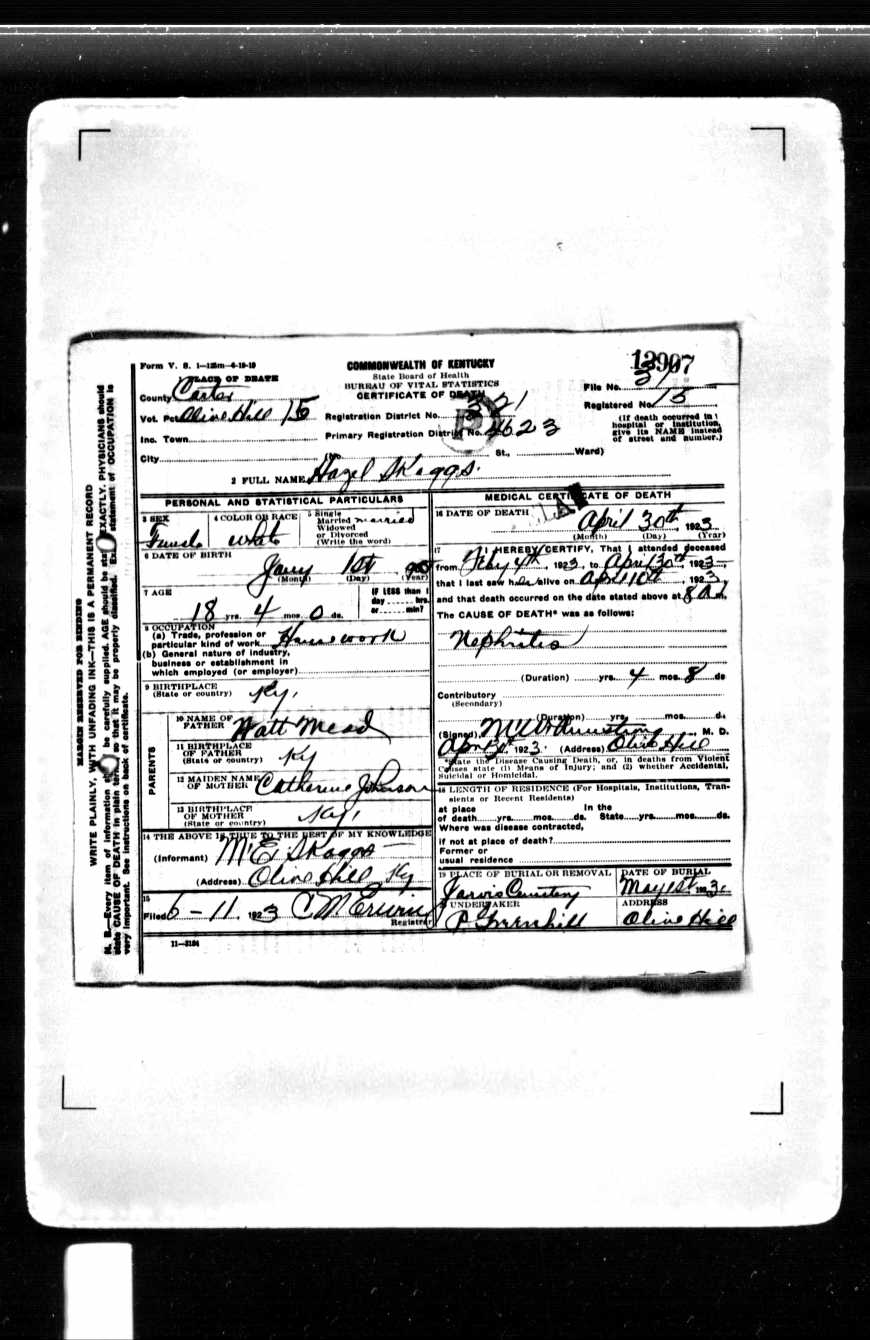 Form V. S. 1—125m—6-19-19
COMMONWEALTH OF KENTUCKY
State Board of Health
BUREAU OF VITAL STATISTICS
CERTIFICATE OF DEATH
12907
PLACE OF DEATH
County Carter
File No. 31
Vot. Pct. Olive Hill 15
Registration District No. 321
Registered No. 15
Inc. Town
Primary Registration District No. 4623
(If death occurred in a hospital or institution, give its NAME instead of street and number.)
City (No. St., Ward)
2 FULL NAME Hazel Skaggs.
PERSONAL AND STATISTICAL PARTICULARS
3 SEX Female
4 COLOR OR RACE white
5 Single Married Widowed or Divorced (Write the word) married
6 DATE OF BIRTH
Jany 1st
(Month) (Day) (Year)
7 AGE
18 yrs. 4 mos. 0 ds.
IF LESS than 1 day hrs. or min?
8 OCCUPATION
(a) Trade, profession or particular kind of work Housework
(b) General nature of industry, business or establishment in which employed (or employer)
9 BIRTHPLACE (State or country) Ky.
PARENTS
10 NAME OF FATHER Watt Mead
11 BIRTHPLACE OF FATHER (State or country) Ky
12 MAIDEN NAME OF MOTHER Catherine Johnson
13 BIRTHPLACE OF MOTHER (State or country) Ky.
14 THE ABOVE IS TRUE TO THE BEST OF MY KNOWLEDGE
(Informant) M. E. Skaggs
(Address) Olive Hill Ky
15
Filed 6-11, 1923 C M Erwin
Registrar
11—3184
MEDICAL CERTIFICATE OF DEATH
16 DATE OF DEATH
April 30th, 1923
(Month) (Day) (Year)
17 I HEREBY CERTIFY, That I attended deceased
from Feby 4th, 1923, to April 30th 1923
that I last saw her alive on April 10th, 1923,
and that death occurred on the date stated above at 8 A M.
The CAUSE OF DEATH* was as follows:
Nephritis
(Duration) yrs. 4 mos. 8 ds
Contributory
(Secondary)
(Duration) yrs. mos. ds.
(Signed) Armstrong M. D.
Apr 30, 1923. (Address) Olive Hill
*State the Disease Causing Death, or, in deaths from Violent Causes state (1) Means of Injury; and (2) whether Accidental, Suicidal or Homicidal.
18 LENGTH OF RESIDENCE (For Hospitals, Institutions, Transients or Recent Residents)
at place of death yrs. mos. ds. In the State yrs. mos. ds.
Where was disease contracted,
if not at place of death?
Former or usual residence
19 PLACE OF BURIAL OR REMOVAL
Jarvis Cemetery
DATE OF BURIAL
May 1st 1923
UNDERTAKER
P. Greenhill
ADDRESS
Olive Hill
MARGIN RESERVED FOR BINDING
WRITE PLAINLY, WITH UNFADING INK—THIS IS A PERMANENT RECORD
N. B.—Every item of information should be carefully supplied. AGE should be stated EXACTLY. PHYSICIANS should
state CAUSE OF DEATH in plain terms, so that it may be properly classified. Exact statement of OCCUPATION is
very important. See instructions on back of certificate.